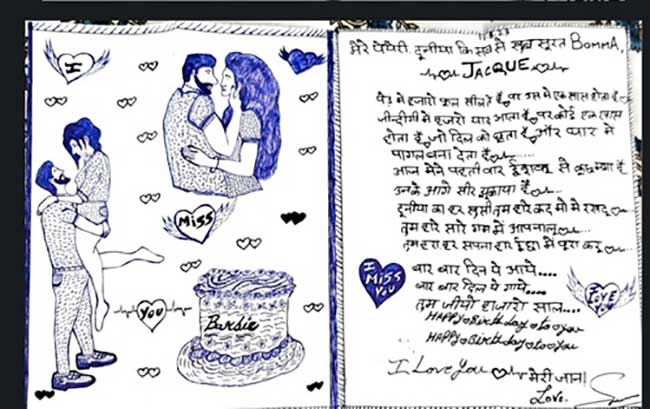 I
Miss
You
Bardie
11.8.23
मेरे पेयेरी, दुनीया कि सब से खुब सुरत BOMMA,
JACQUE
पेड़ मे हजारो फुल खीलते है, पर उस मे एक खास होता है
जीन्दीगी मे हजारो प्यार आता है, पर कोई एक खास
होता है, जो दिल को छुता है, और प्यार मे
पागल बना देता है
आज मेने पहली बार से कुछ है
उनके आगे सीर झुकाया है
दुनीया का हर खुसी तुम हारे कदमो मे रखदु
तुम हारे सारे गम मे आपनालु
तुम हारा हर सपना मे पुरा करु
बार बार दिन ये आये....
बार बार दिल ये गाये....
तुम जीयो हजारो साल....
HAPPY Birthday to you
HAPPY Birthday to you
I MISS YOU
I LOVE YOU
I Love You मेरी जान।
Love.